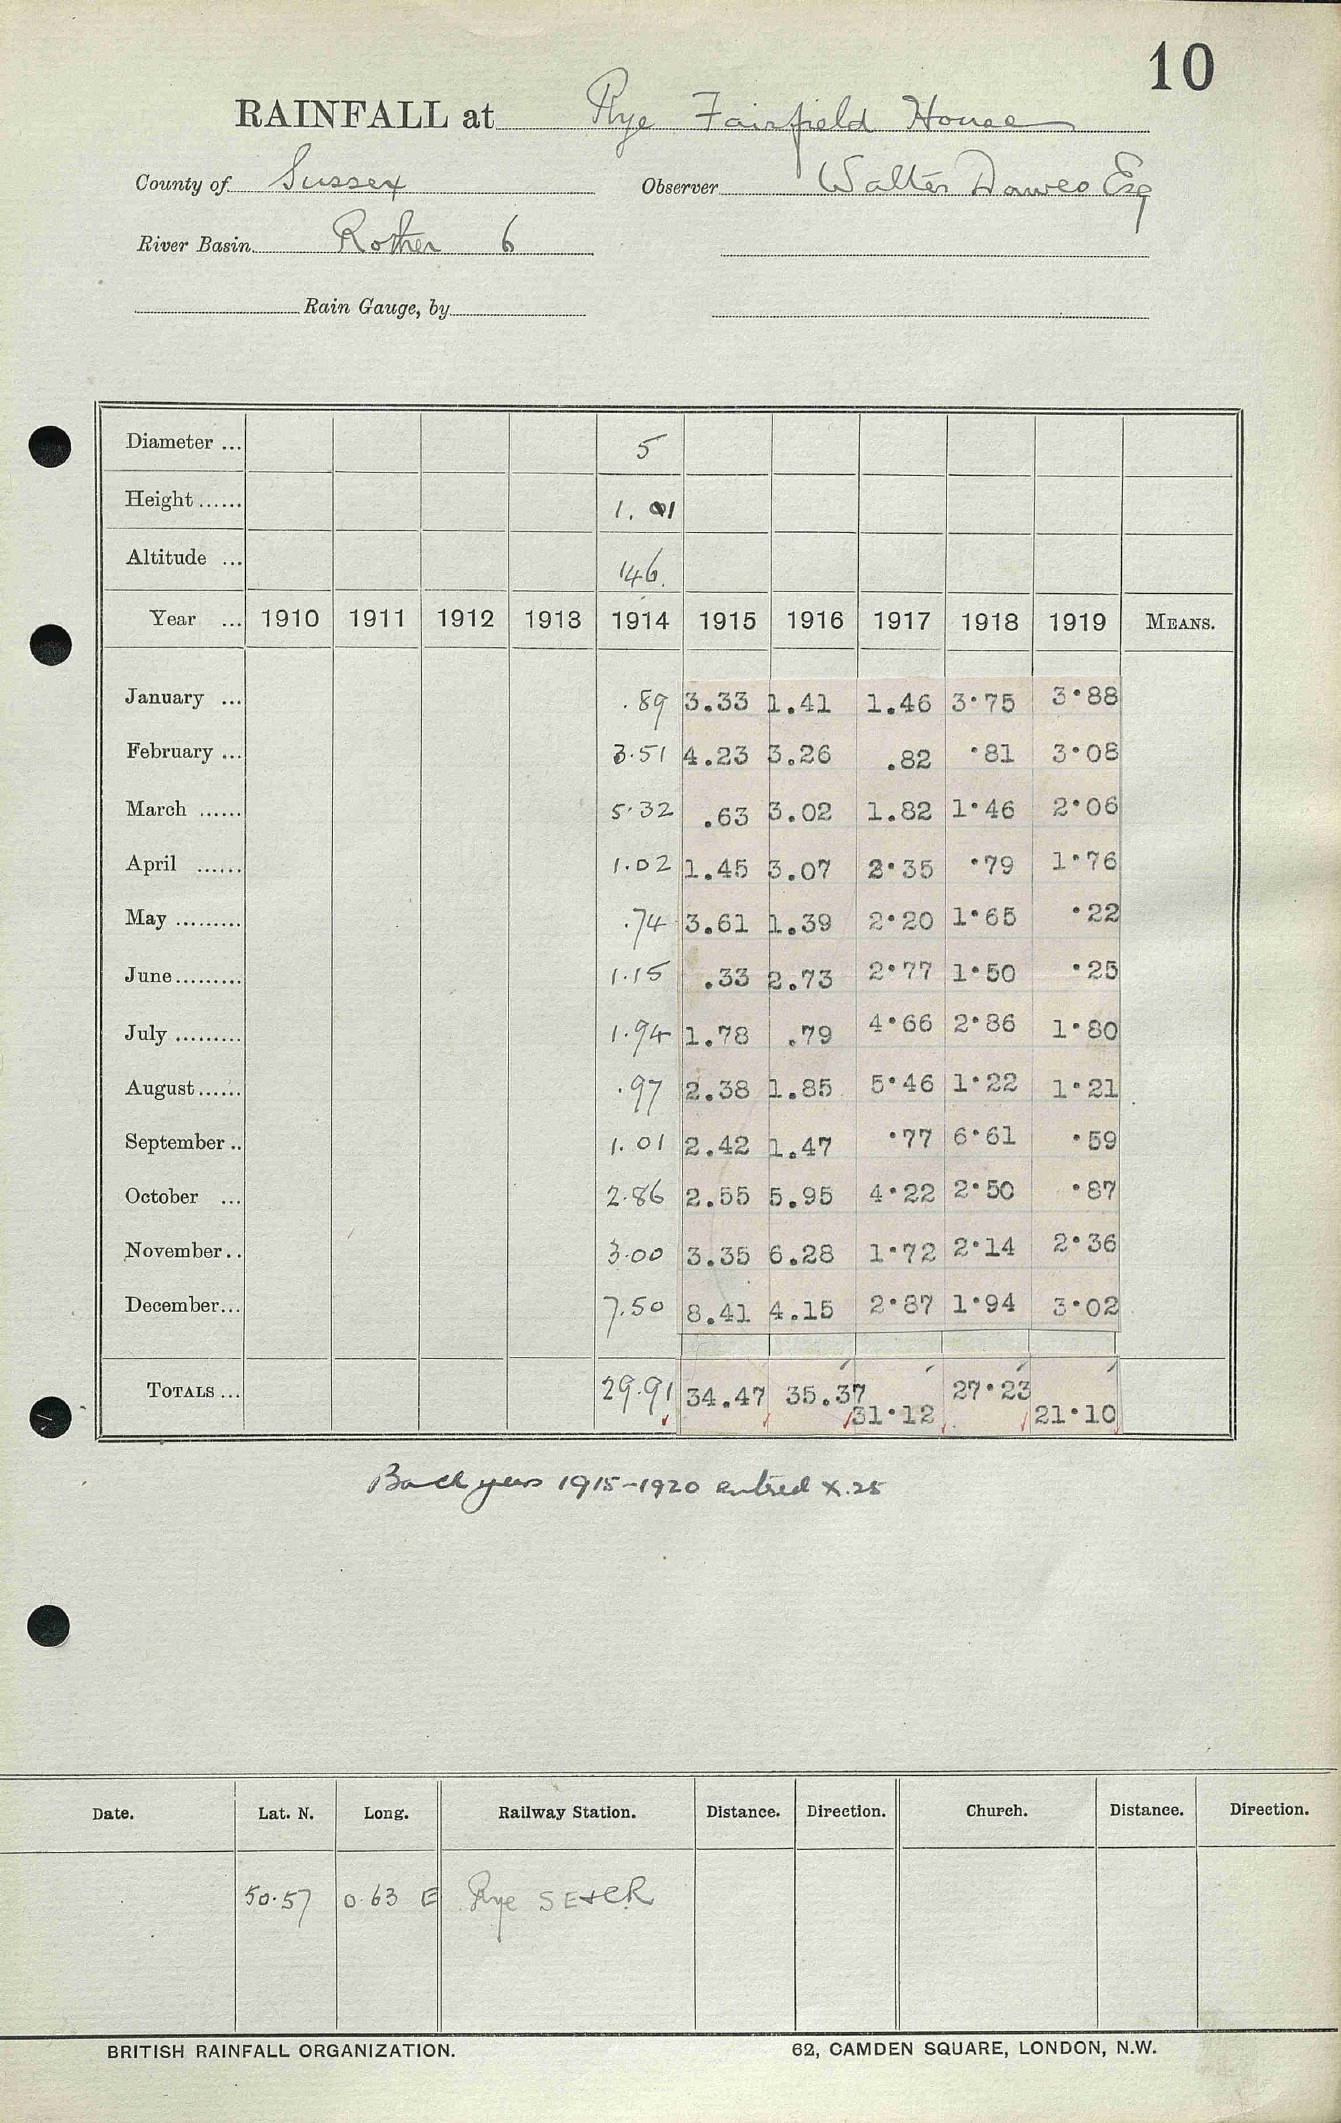 10
RAINFALL at Rye Fairfield House
County of Sussex Observer Walter Dawes Esq
River Basin Rother 6
Rain Gauge, by
Diameter ... 5
Height ...... 1. 01
Altitude ... 146.
Year ... 1910 1911 1912 1913 1914 1915 1916 1917 1918 1919 MEANS.
January ... .89 3.33 1.41 1.46 3.75 3.88
February ... 3.51 4.23 3.26 .82 .81 3.08
March ...... 5.32 .63 3.02 1.82 1.46 2.06
April ...... 1.02 1.45 3.07 2.35 .79 1.76
May ......... .74 3.61 1.39 2.20 1.65 .22
June ......... 1.15 .33 2.73 2.77 1.50 .25
July ......... 1.94 1.78 .79 4.66 2.86 1.80
August ...... .97 2.38 1.85 5.46 1.22 1.21
September .. 1.01 2.42 1.47 .77 6.61 .59
October ... 2.86 2.55 5.95 4.22 2.50 .87
November .. 3.00 3.35 6.28 1.72 2.14 2.36
December ... 7.50 8.41 4.15 2.87 1.94 3.02
TOTALS ... 29.91 34.47 35.37 31.12 27.23 21.10
Back years 1915-1920 entred X.25
Date. Lat. N. Long. Railway Station. Distance. Direction. Church. Distance. Direction.
50.57 0.63 E Rye SE+CR
BRITISH RAINFALL ORGANIZATION. 62, CAMDEN SQUARE, LONDON, N.W.